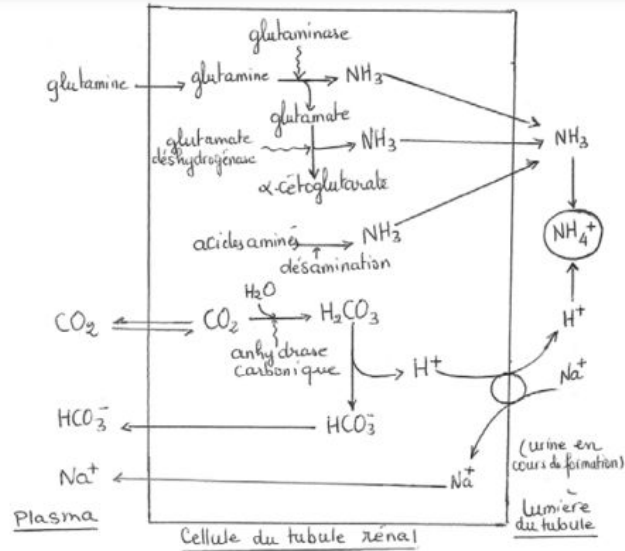 glutaminase
glutamine → glutamine → NH3
glutamate
NH3
glutamate
déshydrogénase
NH3
α-cétoglutarate
NH4+
acides aminés → NH3
désamination
H2O
CO2 ⇌ CO2 → H2CO3
H+
anhydrase
carbonique
H+
Na+
HCO3- ← HCO3-
(urine en
cours de formation)
Na+ ← Na+
Plasma
Lumière
du tubule
Cellule du tubule rénal